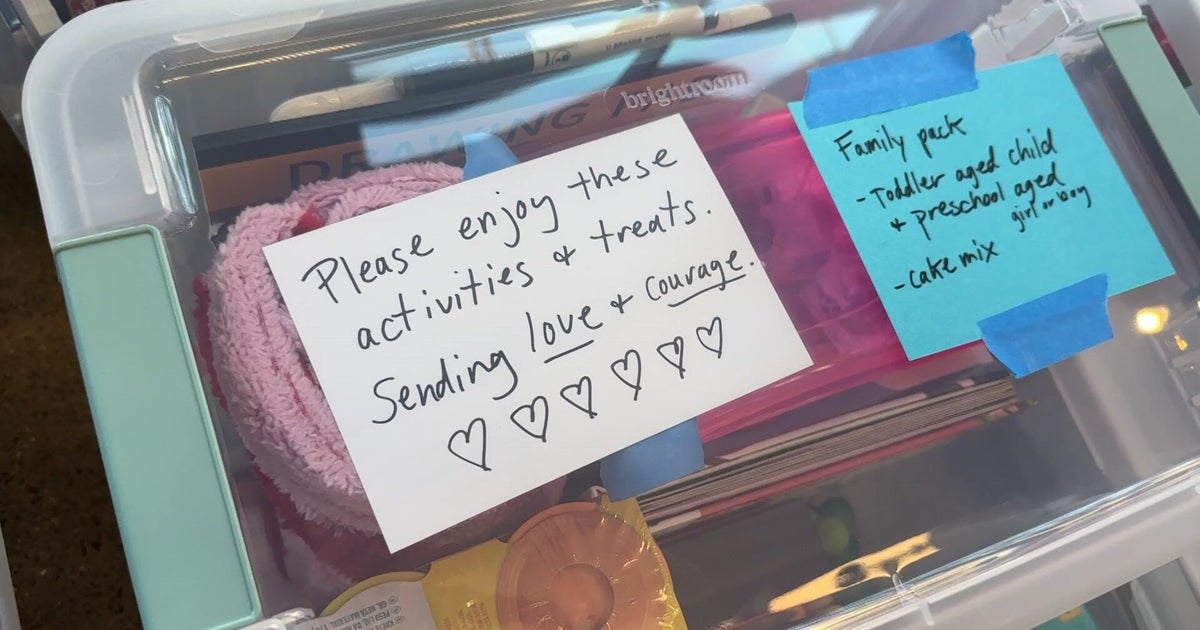 brightroom
DRAWING
Please enjoy these
activities & treats.
Sending love & courage.
Family pack
- Toddler aged child
& preschool aged
girl or boy
- cake mix